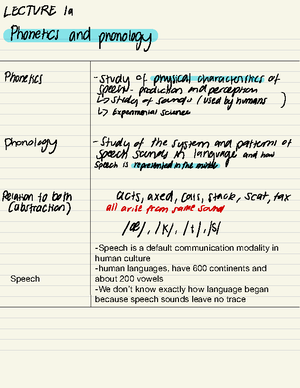 LECTURE 1a
Phonetics and phonology
Phonetics
- Study of physical characteristics of
speech - production and perception
↳ Study of sounds (used by humans )
↳ Experimental science
Phonology
- Study of the system and patterns of
speech sounds in language and how
speech is represented in the
Relation to both
(abstraction)
acts, axed, cats, stack, scat, tax
all arise from same sound
/æ/, /k/, /t/, /s/
Speech
-Speech is a default communication modality in
human culture
-human languages, have 600 continents and
about 200 vowels
-We don't know exactly how language began
because speech sounds leave no trace